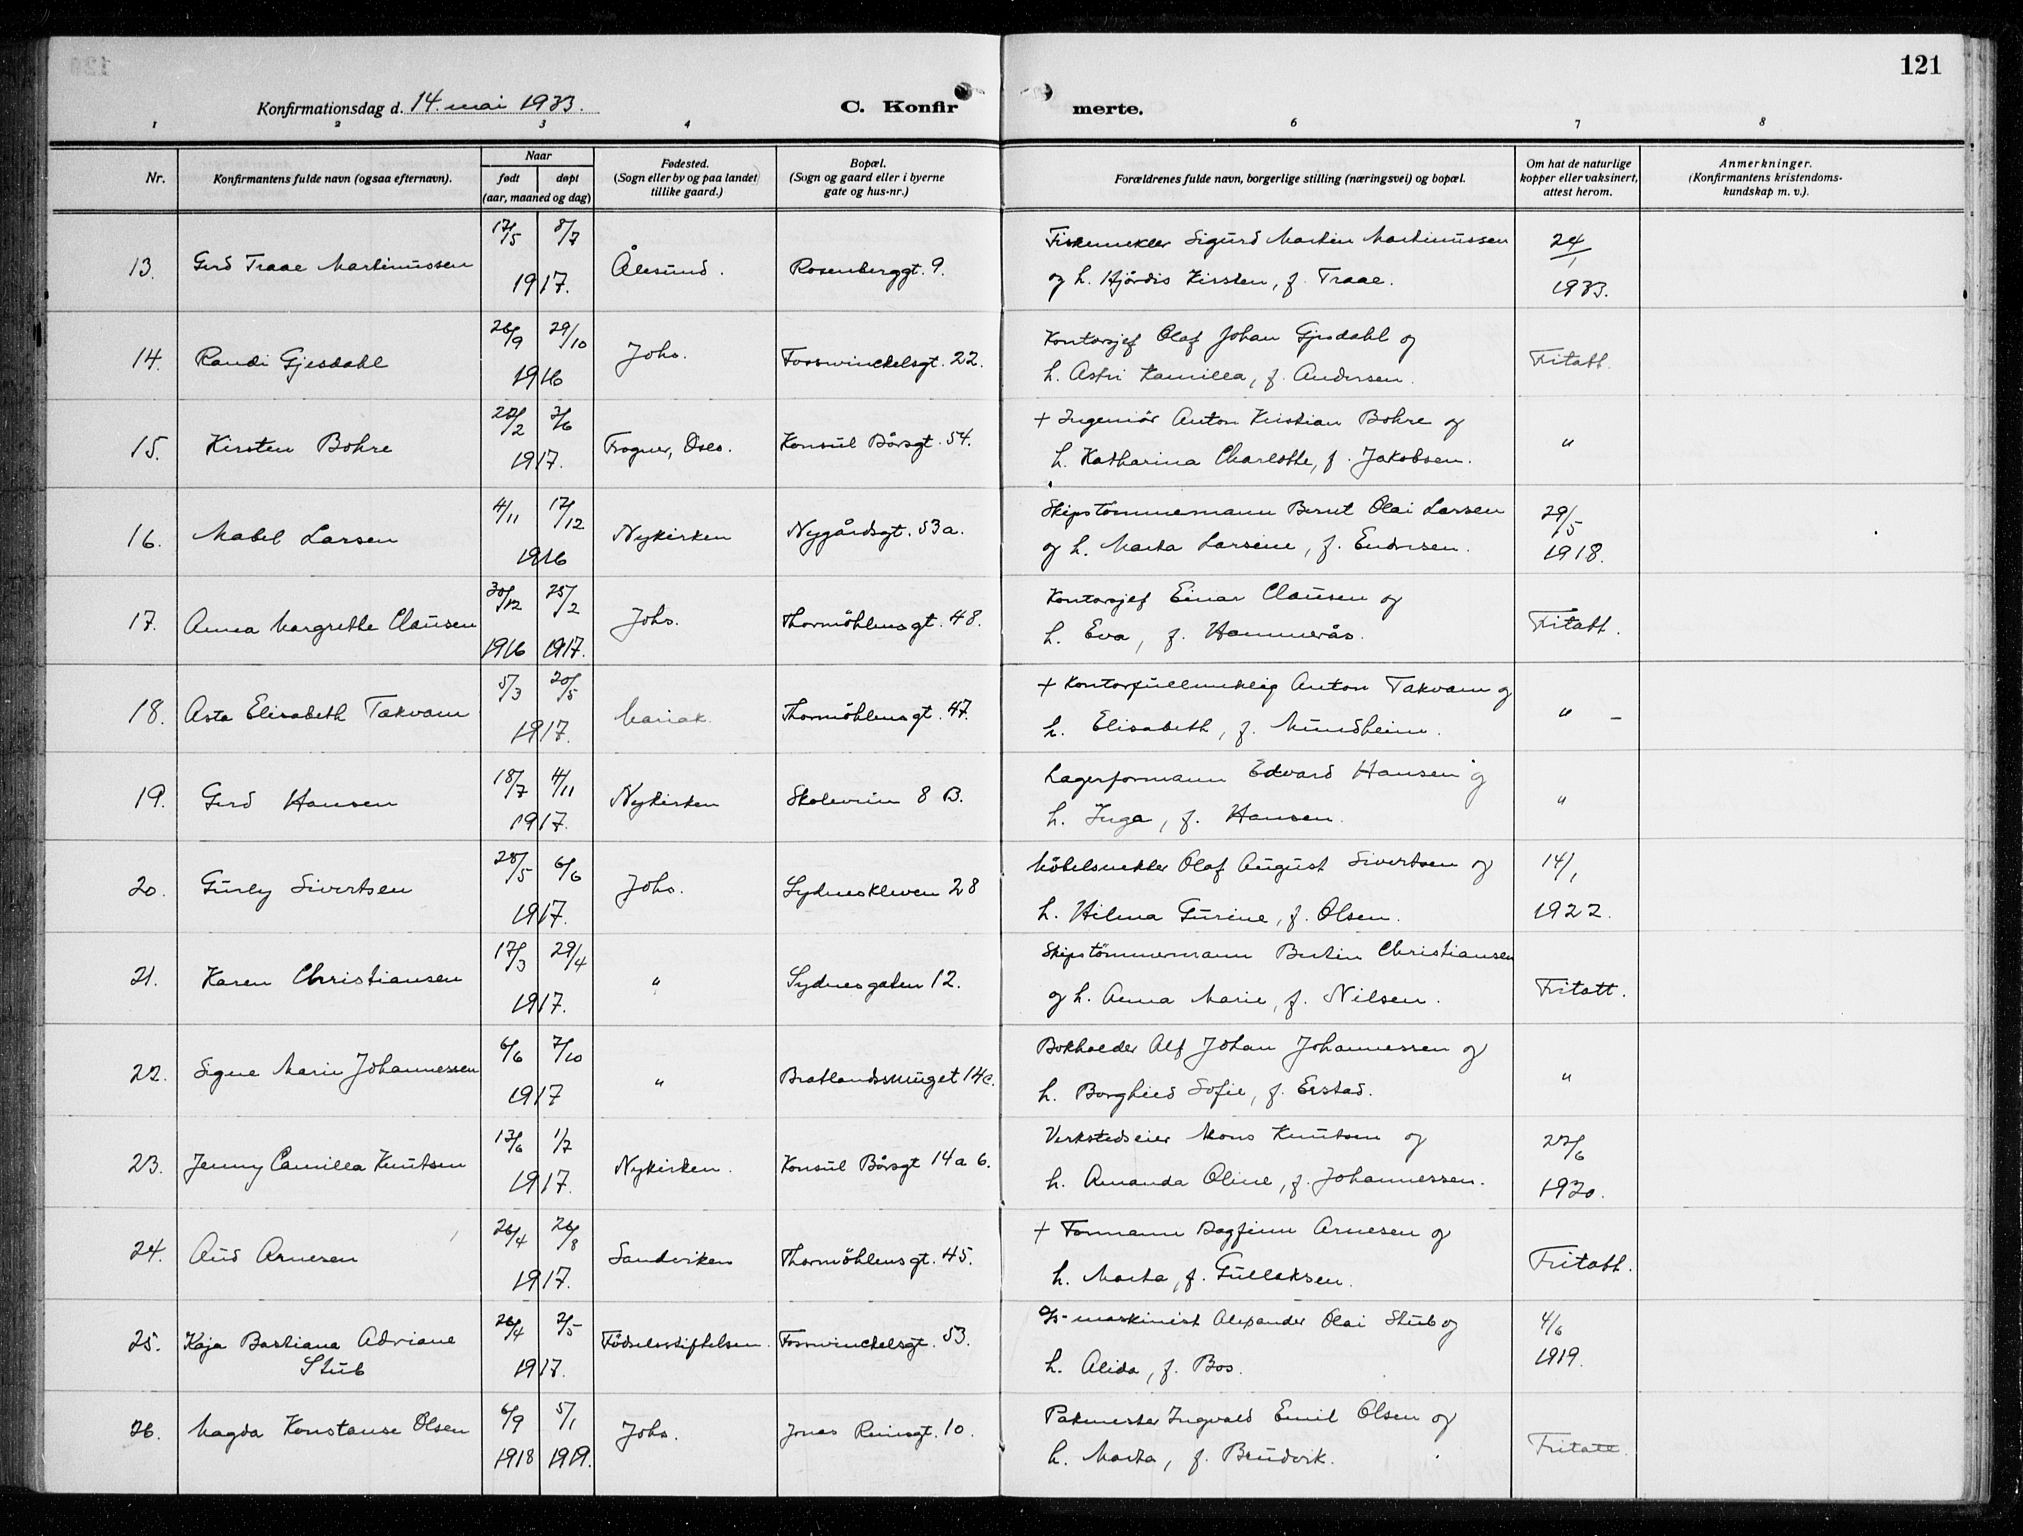 121
Konfirmationsdag d. 14. mai 1933.
C. Konfir
merte.
1 2 3 4 6 7 8
Nr.
Konfirmantens fulde navn (ogsaa efternavn).
Naar
født døpt
(aar, maaned og dag)
Fødested.
(Sogn eller by og paa landet
tillike gaard.)
Bopæl.
(Sogn og gaard eller i byerne
gate og hus-nr.)
Forældrenes fulde navn, borgerlige stilling (næringsvei) og bopæl.
Om hat de naturlige
kopper eller vaksinert,
attest herom.
Anmerkninger.
(Konfirmantens kristendoms-
kundskap m. v.).
13. Gerd Traae Martinussen 8/7 1917. Ålesund. Rosenberggt. 9. Sigurd Martin Martinussen 24/1
og h. Hjørdis Kirsten, f. Traae. 1933.
14. Randi Gjesdahl 26/9 29/10 1916 Johs. Fosswinckelsgt. 22. Kontorsjef Olaf Johan Gjesdahl og
h. Astri Kamilla, f. Andersen. Fritatt.
15. Kirsten Bohre 1917. Frogner, Oslo. Konsul Børsgt. 54. + Ingeniør Anton Kristian Bohre og
h. Katharina Charlotte, f. Jakobsen. "
16. Mabel Larsen 4/11 17/12 1916 Nykirken Nygårdsgt. 53a. Skipstømmermann Bernt Olai Larsen 29/5
og h. Marta Larsine, f. Endresen. 1918.
17. Anna Margrethe Clausen 30/12 1916 25/2 1917. Johs. Thormøhlensgt. 48. Kontorsjef Einar Clausen og
h. Eva, f. Hammerås. Fritatt.
18. Asta Elisabeth Takvam 5/3 20/5 1917. Mariak. Thormøhlensgt. 47. + Kontorfullmektig Anton Takvam og
h. Elisabeth, f. Mundheim. " -
19. Gerd Hansen 18/7 4/11 1917. Nykirken Skolevein 8 B. Lagerformann Edvard Hansen og
h. Inga, f. Hansen. "
20. Gurly Sivertsen 28/5 6/6 1917. Johs. Sydneskleven 28 Møbelsnekker Olaf August Sivertsen og 14/1
h. Hilma Gurine, f. Olsen. 1922.
21. Karen Christiansen 17/3 29/4 1917. " Sydnesgaten 12. Skipstømmermann Bertin Christiansen
og h. Anna Marie, f. Nilsen. Fritatt.
22. Signe Marie Johannessen 6/6 7/10 1917 " Bratlandssmuget 14c. Bokholder Alf Johan Johannessen og
h. Borghild Sofie, f. Erstad. "
23. Jenny Camilla Knutsen 13/6 1/7 1917. Nykirken. Konsul Børsgt 14a 6. Verkstedseier Mons Knutsen og
h. Amanda Oline, f. Johannessen. 1930.
24. Aud Arnesen 26/4 26/8 1917. Sandviken Thormøhlensgt. 45. + Formann Dagfinn Arnesen og
h. Marta, f. Gullaksen. Fritatt.
25. Kaja Bastiana Adriane
Stub 26/4 2/5 1917. Fødselsstiftelsen. Fosswinckelsgt. 53. maskinist Alexander Olai Stub og 4/6
h. Alida, f. Bos. 1919.
26. Magda Konstanse Olsen 6/9 1918 5/1 1919. Johs. Jonas Reinsgt. 10. Pakmester Ingvald Emil Olsen og
h. Marta, f. Brudvik. Fritatt.